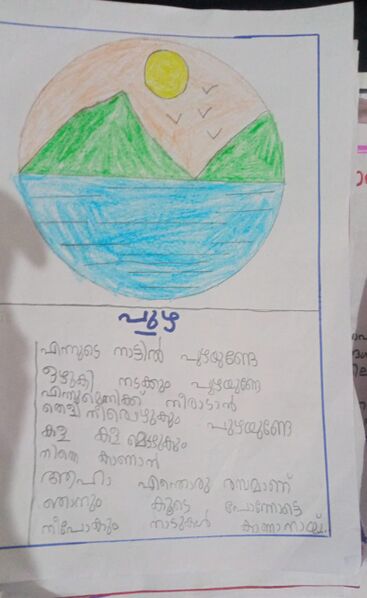 പുഴ
എന്നുടെ നാട്ടിൽ പുഴയുണ്ടേ
ഒഴുകി നടക്കും പുഴയുണ്ടേ
നീരാടാൻ
തെളിനീരൊഴുകും പുഴയുണ്ടേ
കള കള മൊഴുകും
നിന്നെ കാണാൻ
ആഹാ എന്തൊരു രസമാണ്
ഞാനും കൂടെ പോന്നോട്ടെ
നീപോകും നാടുകൾ കാണാനായ്.